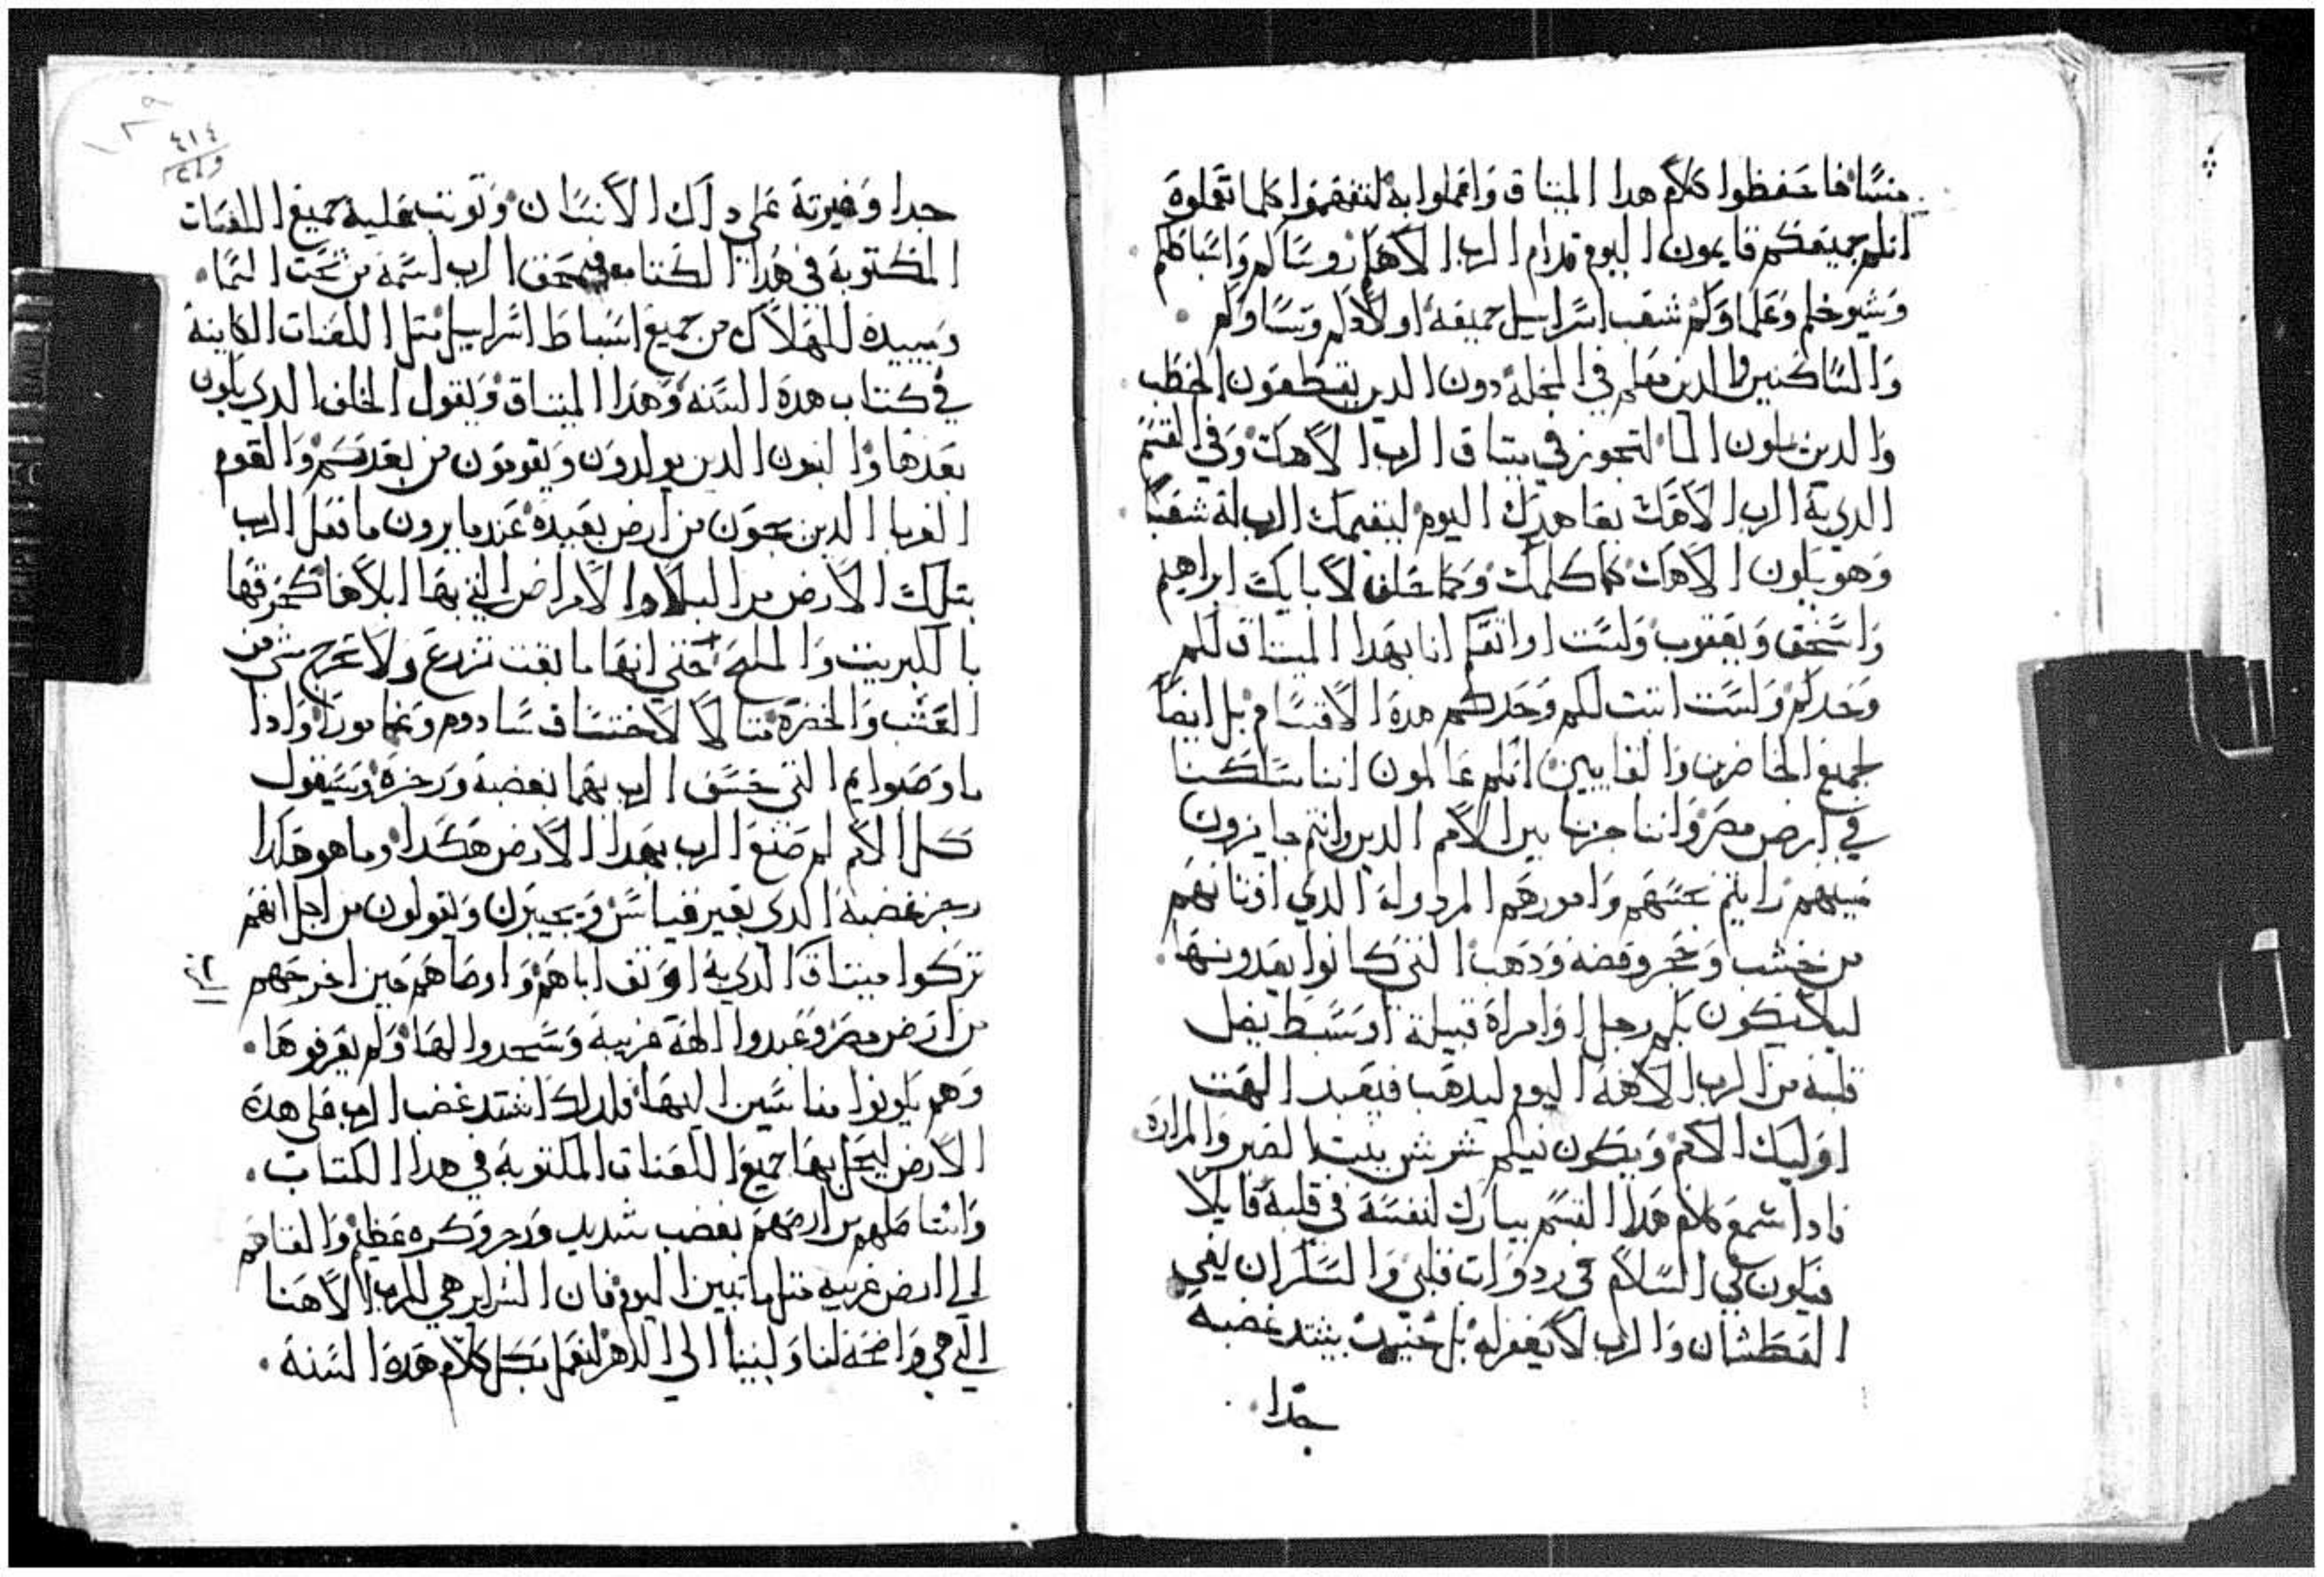 منسا فاحفظوا كلام هدا الميتاق واعملوا به لتفهموا كلما تعملوة
انتم جميعكم قايمون اليوم قدام الرب الاهكم روساكم واسباطكم
وشيوخكم وعلماوكم شعب اسراييل جميعه اولادكم ونساوكم
والساكنين والدين معكم في المحلة دون الدين يقطعون الحطب
والدين يملون الما لتجوز في ميتاق الرب الاهك وفي القسم
الدي به الرب الاهك يعاهدك اليوم ليقيمك الرب له شعبا
وهو يكون الاهك كما كلمك وكما حلف لابايك ابراهيم
واسحق ويعقوب ولست اواتقكم انا بهدا الميتاق لكم
وحدكم ولست اتبت لكم وحدكم هدة الاقسام بل ايضا
لجميع الحاضرين والغايبين انتم عالمون اننا سكنا
في ارض مصر واننا جزنا بين الامم الدين انتم جايزون
بينهم رايتم نجسهم وامورهم المردولة الدي اوتانهم
من خشب وحجر وفضه ودهب التي كانوا يعبدونها
ليلا يكون بكم رجل او امراة قبيلة او سبط يضل
قلبه من الرب الاهه اليوم ليدهب فيعبد الهت
اوليك الامم ويكون فيكم شرش ينبت الصبر والمرارة
فادا سمع كلام هدا القسم يبارك لنفسه في قلبه قايلا
فيكون لي السلام في ردوات قلبي والسكران يفي
العطشان والرب لا يغفر له بل حينيد يشتد غضبه
جدا
٤١٤
جدا وغيرته على داك الانسان وتوتب عليه جميع اللعنات
المكتوبة في هدا الكتاب فيمحق الرب اسمه من تحت السما
ويبيده للهلاك من جميع اسباط اسراييل متل اللعنات الكاينة
في كتاب هدة السنه وهدا الميتاق ويقول الخلف الدي يكون
بعدها والبنون الدين يولدون ويقومون من بعدكم والقوم
الغربا الدين يجون من ارض بعيدة عندما يرون ما فعل الرب
بتلك الارض من البلا والامراض التي بها ابلاها كحرقها
بالكبريت والملح حتي انها ما بقت تزدع ولا تخرج شي من
العشب والخضرة متالا لاختساف سادوم وغامورا وادا
ما وصبوايم التي خسف الرب بهما بغضبه ورجزة وسيقول
كل الامم لم صنع الرب بهدا الارض هكدا وما هو هدا
رجز غضبة الدي بغير قياس ويجيبون ويقولون من اجل انهم
تركوا ميتاق الدي به اوتق اباهم واوصاهم حين اخرجهم
من ارض مصر وعبدوا الهة غريبة وسجدوا لها ولم يعرفوها
وهم يكونوا مناسين اليها فلدلك اشتد غضب الرب على هدة
الارض ليحل بها جميع اللعنات المكتوبة في هدا الكتاب
واستاصلهم من ارضهم بغضب شديد ورجز وكره عظيم والقاهم
الي ارض غريبه متل ما تبين اليوم فان السراير هي للرب الاهنا
التي هي واضحة لنا ولبنينا الي الدهر لنعمل بكل كلام هدة السنة